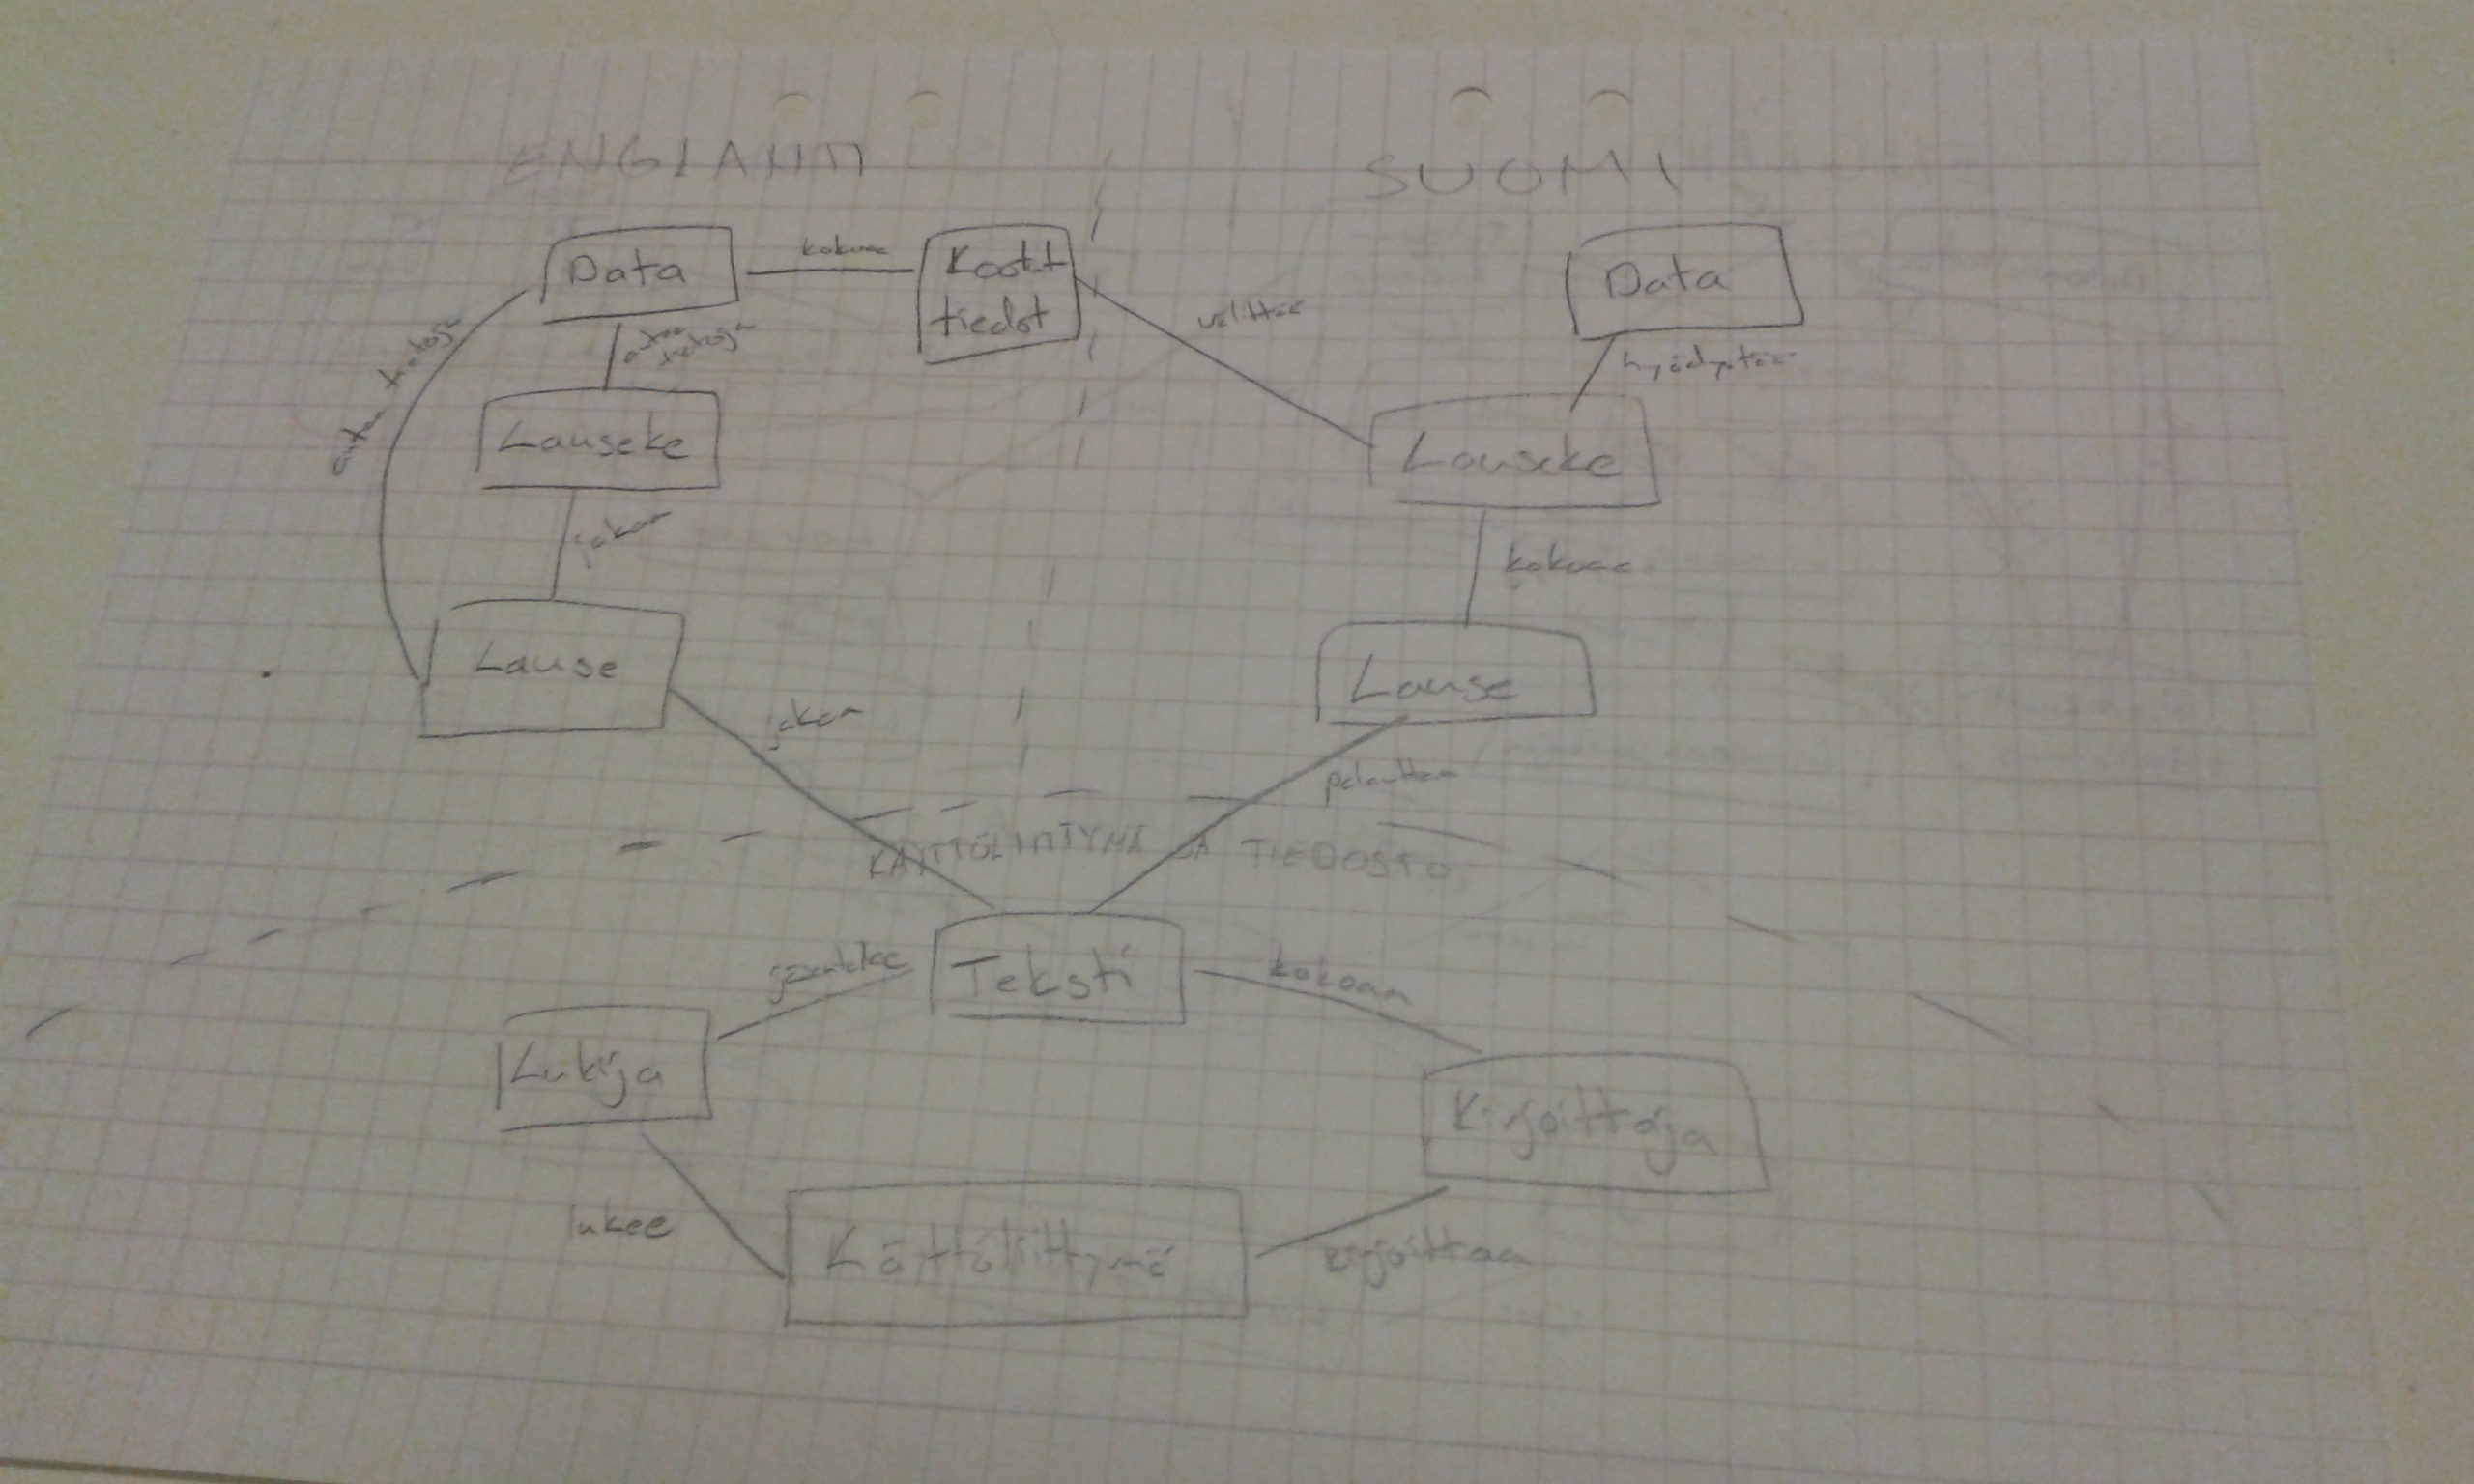 ENGLANTI
SUOMI
Data
kokoaa
Kootut
tiedot
välittää
Data
antaa tietoja
antaa
tietoja
hyödyntää
Lauseke
Lauseke
jakaa
kokoaa
Lause
Lause
jakaa
palauttaa
KÄYTTÖLIITTYMÄ JA TIEDOSTO
Teksti
kokoaa
Lukija
Kirjoittaja
lukee
Käyttöliittymä
kirjoittaa